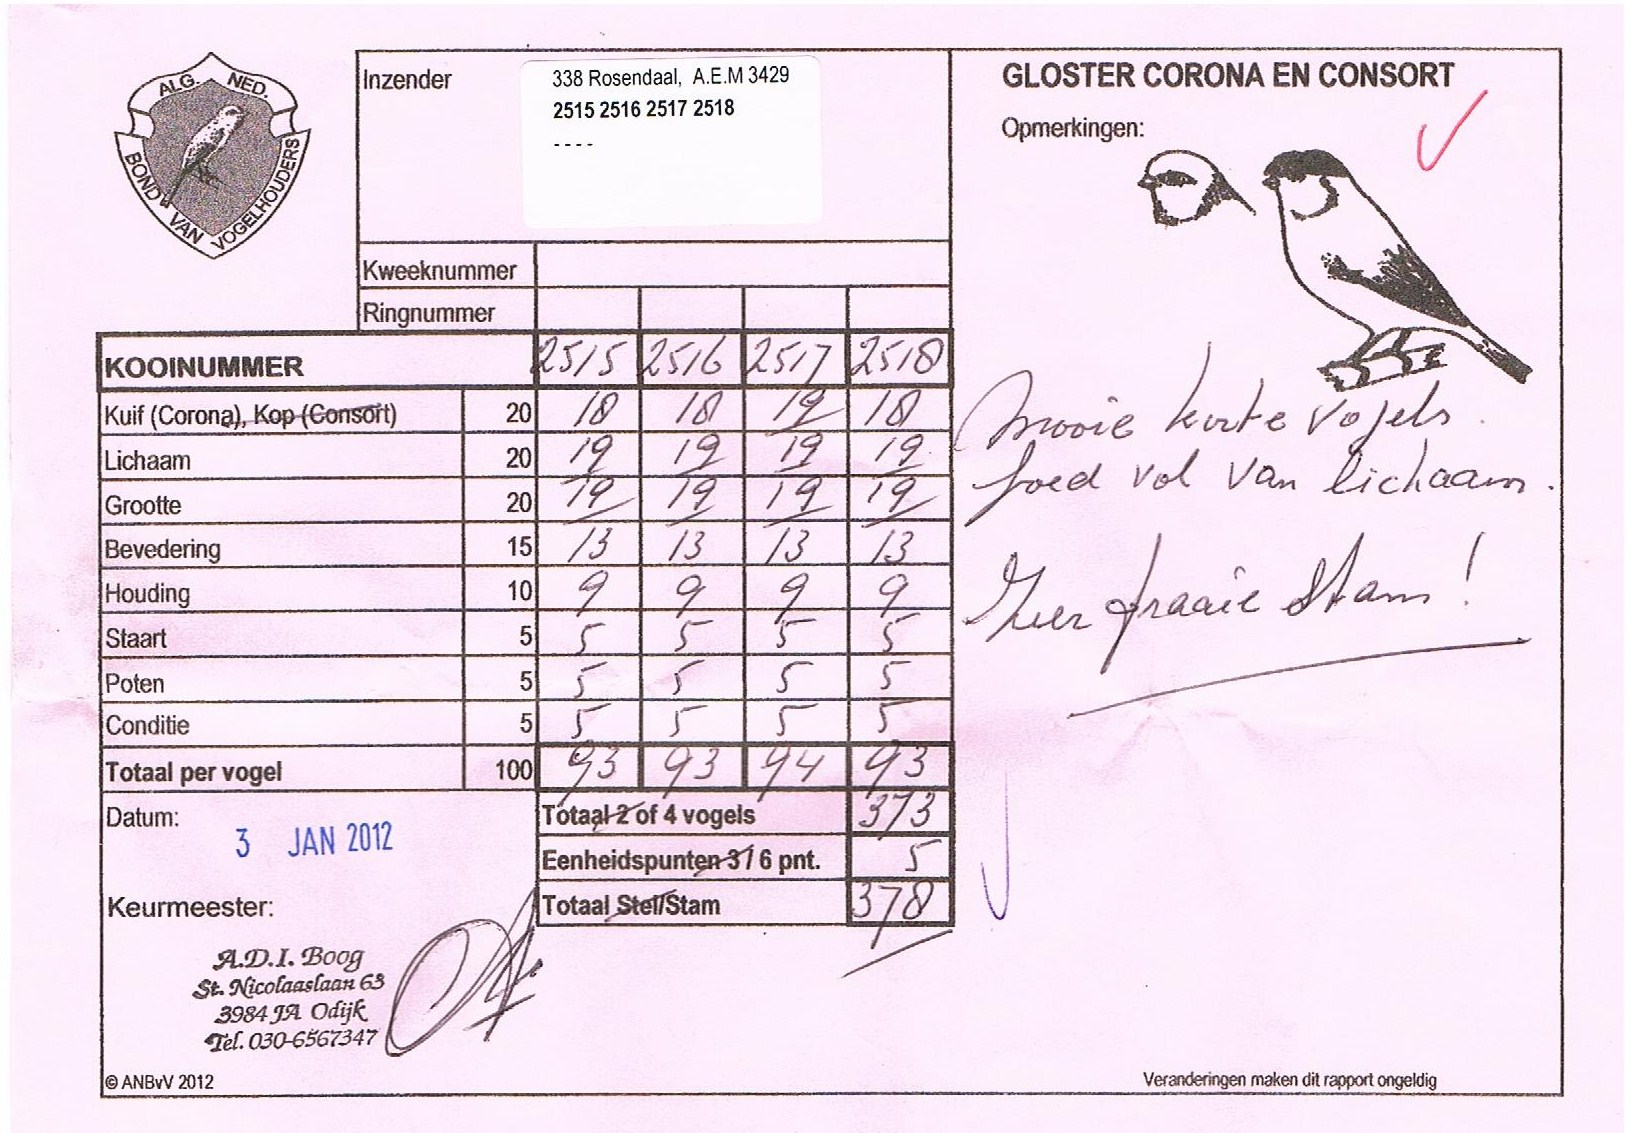 ALG. NED.
BOND VAN VOGELHOUDERS
Inzender
338 Rosendaal, A.E.M 3429
2515 2516 2517 2518
- - - -
Kweeknummer
Ringnummer
KOOINUMMER 2515 2516 2517 2518
Kuif (Corona), Kop (Consort) 20 18 18 19 18
Lichaam 20 19 19 19 19
Grootte 20 19 19 19 19
Bevedering 15 13 13 13 13
Houding 10 9 9 9 9
Staart 5 5 5 5 5
Poten 5 5 5 5 5
Conditie 5 5 5 5 5
Totaal per vogel 100 93 93 94 93
Totaal 2 of 4 vogels 373
Eenheidspunten 3 / 6 pnt. 5
Totaal Stel/Stam 378
Datum:
3 JAN 2012
Keurmeester:
A.D.I. Boog
St. Nicolaaslaan 63
3984 JA Odijk
Tel. 030-6567347
© ANBvV 2012
GLOSTER CORONA EN CONSORT
Opmerkingen:
Mooie korte vogels.
Goed vol van lichaam.
Zeer fraaie Stam!
Veranderingen maken dit rapport ongeldig